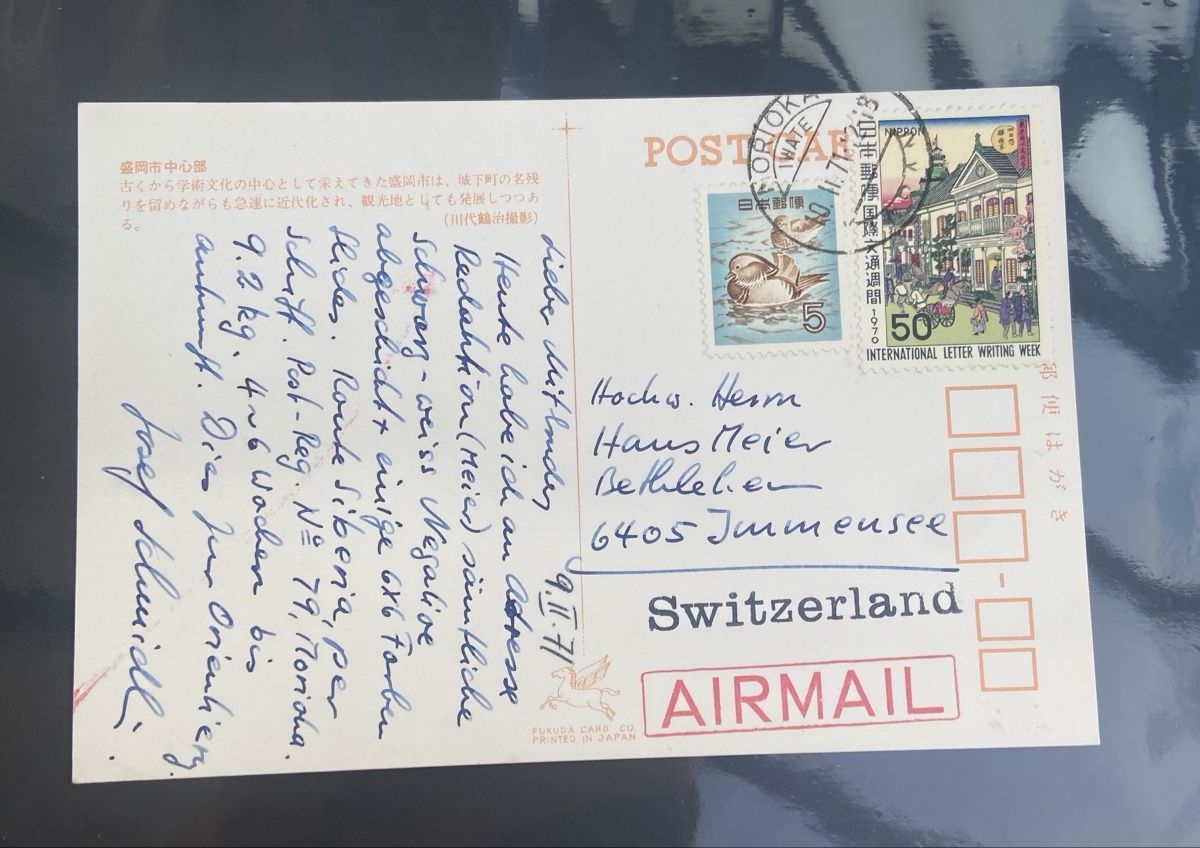 盛岡市中心部
古くから学術文化の中心として栄えてきた盛岡市は、城下町の名残
りを留めながらも急速に近代化され、観光地としても発展しつつあ
る。 (川代鶴治撮影)
Liebe Mitbrüder,
Heute habe ich an Adresse
Redaktion (Meier) sämtliche
Schwarz-weiss Negative
abgeschickt + einige 6x6 Farben
Slides. Route Siberia, per
Schiff. Post-Reg. Nº 79, Morioka.
9.2 kg. 4~6 Wochen bis
Ankunft. Dies zur Orientierg.
Josef Schmidli.
9.II.71
POST CARD
MORIOKA
IWATE
10.II.71
日本郵便
5
NIPPON
日本郵便
国際文通週間
1970
50
INTERNATIONAL LETTER WRITING WEEK
郵便はがき
Hochw. Herrn
Hans Meier
Bethlehem
6405 Immensee
Switzerland
AIRMAIL
FUKUDA CARD CO.
PRINTED IN JAPAN